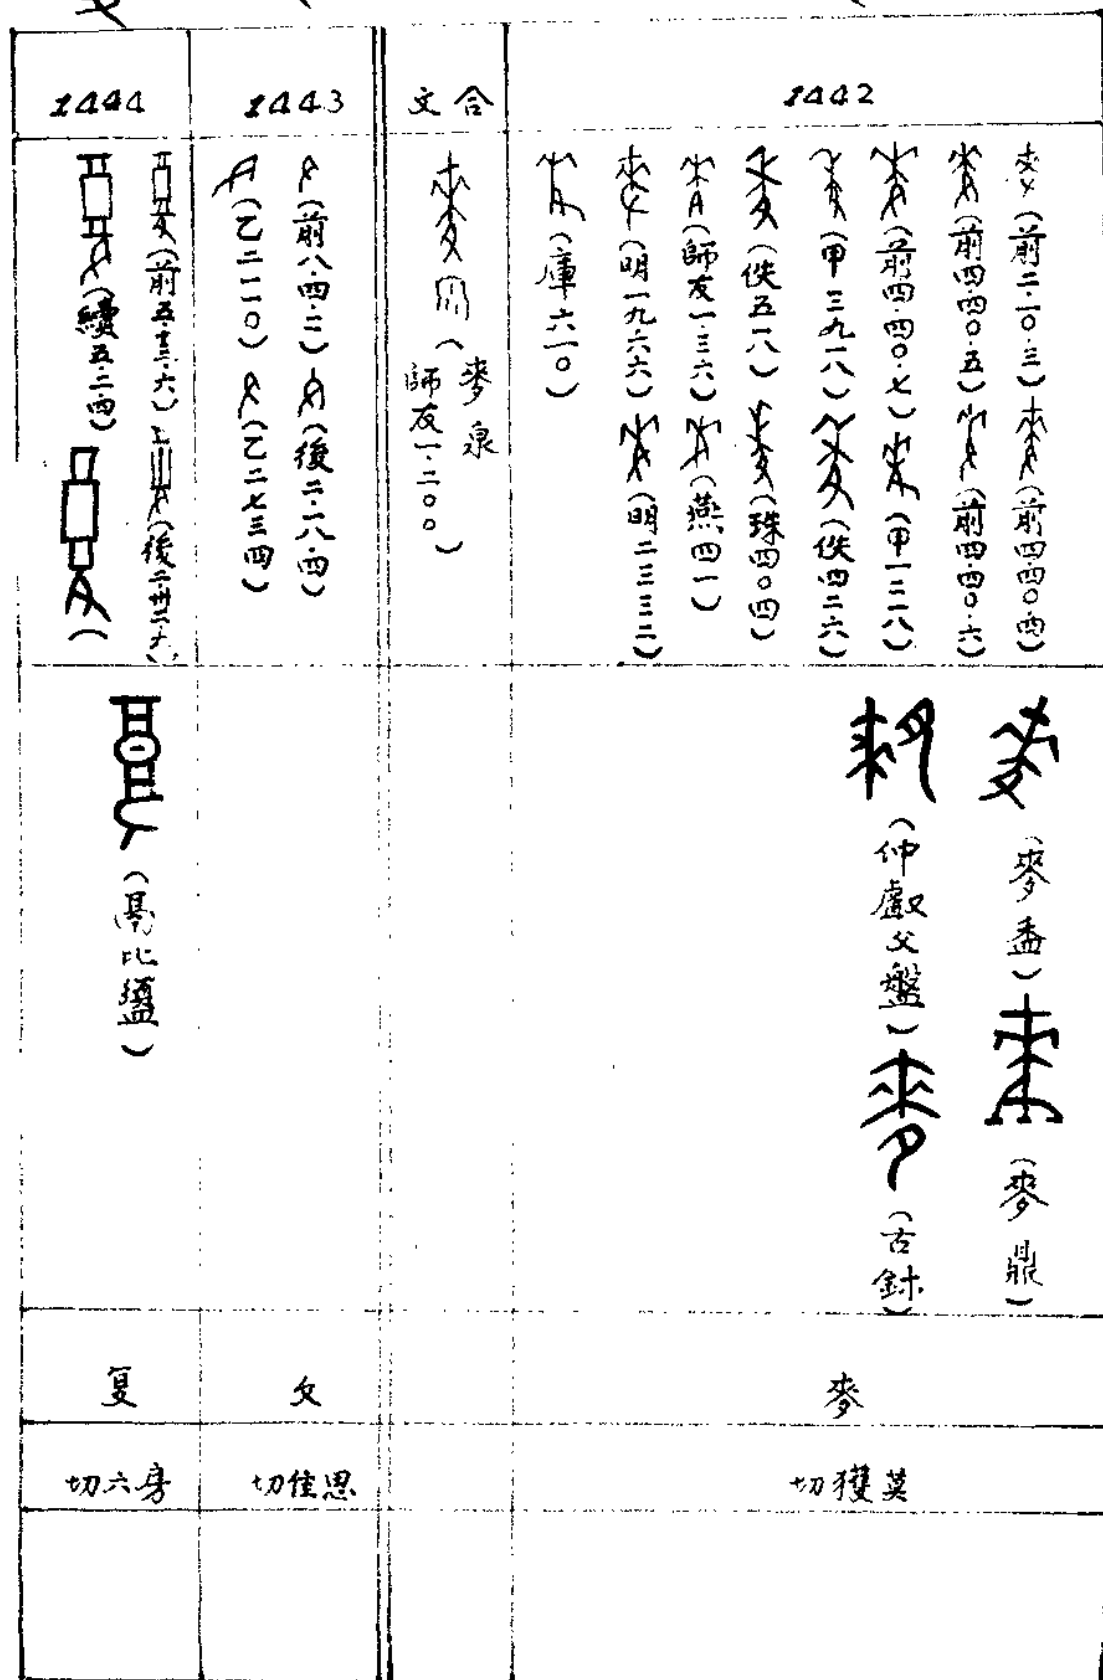 1442
(前二·一〇·三) (前四·四〇·四)
(前四·四〇·五) (前四·四〇·六)
(前四·四〇·七) (甲一二八)
(甲三九一八) (佚四二六)
(佚五一八) (珠四〇四)
(師友一·三六) (燕四一)
(明一九六六) (明二三三二)
(庫六一〇)
(麥盉) (麥鼎)
(仲𠭯父盤) (古鉨)
麥
莫獲切
合文
(麥泉
師友一·二〇〇)
1443
(前八·四·二) (後二·一八·四)
(乙二一一〇) (乙二七三四)
夊
思佳切
1444
(前五·十三·六) (後二·卅二·六)
(續五·二四) (
(鬲比盨)
复
房六切